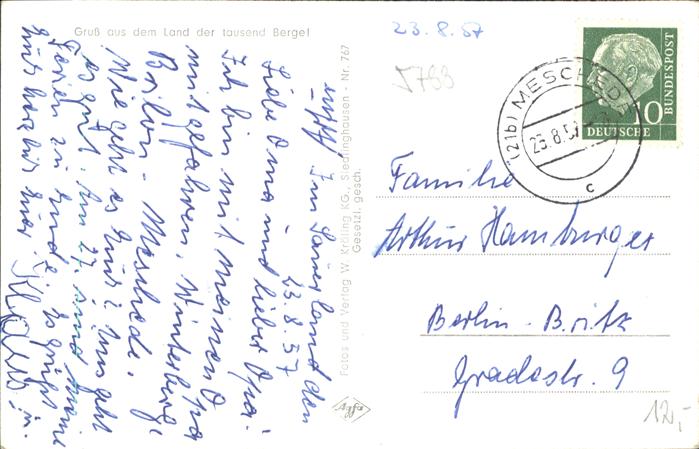 Gruß aus dem Land der tausend Berge!
23.8.57
Im Sauerland den
23.8.57
Liebe Oma und lieber Opa!
Ich bin mit meinen
mitgefahren. Winterberg,
Brilon - Meschede.
Wie geht es Euch? Uns geht
es gut. Am 27. sind meine
Ferien zu Ende. Es grüßt
Euch herzlich Euer
Klaus
Fotos und Verlag W. Krölling KG., Siedlinghausen - Nr. 767
Gesetzl. gesch.
Agfa
(21b) MESCHEDE
23.8.57
c
10
DEUTSCHE
BUNDESPOST
Familie
Arthur Hamburger
Berlin - Britz
Gradestr. 9
12,-